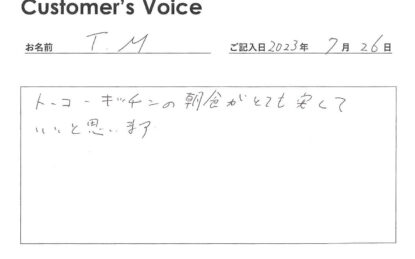 Customer's Voice
お名前 T.M ご記入日2023年 7月 26日
トーコーキッチンの朝食がとても安くて
いいと思います